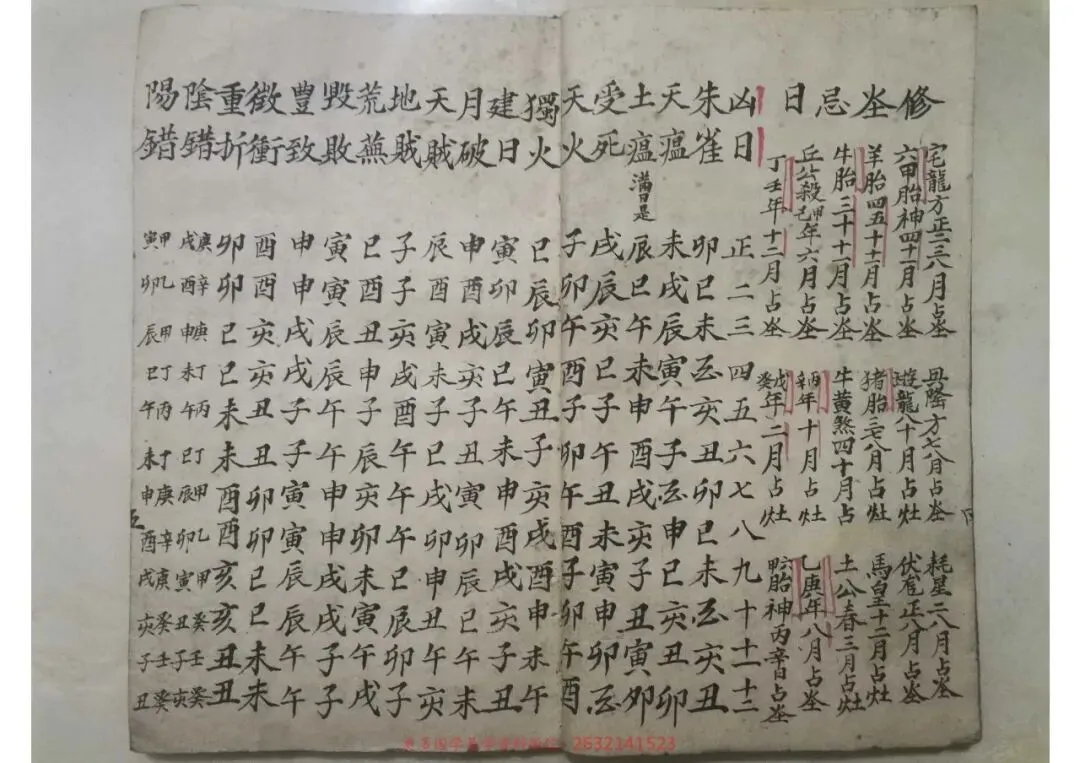 修忌日
宅龍方正二三八月占
毋隂方七八月占
耗星二八月占
六甲胎神四十一月占
遊龍八十月占灶
伏龍正八月占
羊胎四五十十一月占
猪胎三七八月占灶
馬皇十二月占灶
牛胎三十十一月占
牛黃煞四十月占
土公春三月占灶
丘公殺甲己年六月占
丙辛年十月占灶
乙庚年八月占
丁壬年十二月占
戊癸年二月占灶
六甲胎神丙辛日占
凶日 正二三四五六七八九十十一十二
朱雀 卯巳未酉亥丑卯巳未酉亥丑
天瘟 未戌辰寅午子酉申巳亥丑卯
土瘟 滿日是 辰巳午未申酉戌亥子丑寅卯
受死 戌辰亥巳子午丑未寅申卯酉
天火 子卯午酉子卯午酉子卯午酉
獨火 巳辰卯寅丑子亥戌酉申未午
建日 寅卯辰巳午未申酉戌亥子丑
月破 申酉戌亥子丑寅卯辰巳午未
天賊 辰酉寅未子巳戌卯申丑午亥
地賊 子子亥戌酉午午午巳辰卯子
荒蕪 巳酉丑申子辰亥卯未寅午戌
毀敗 寅寅辰辰午午申申戌戌子子
豐致 申申戌戌子子寅寅辰辰午午
徵衝 酉酉亥亥丑丑卯卯巳巳未未
重折 卯卯巳巳未未酉酉亥亥丑丑
陰錯 庚戌 辛酉 庚申 丁未 丙午 丁巳 甲辰 乙卯 甲寅 癸丑 壬子 癸亥
陽錯 甲寅 乙卯 甲辰 丁巳 丙午 丁未 庚申 辛酉 庚戌 癸亥 壬子 癸丑
2632141523